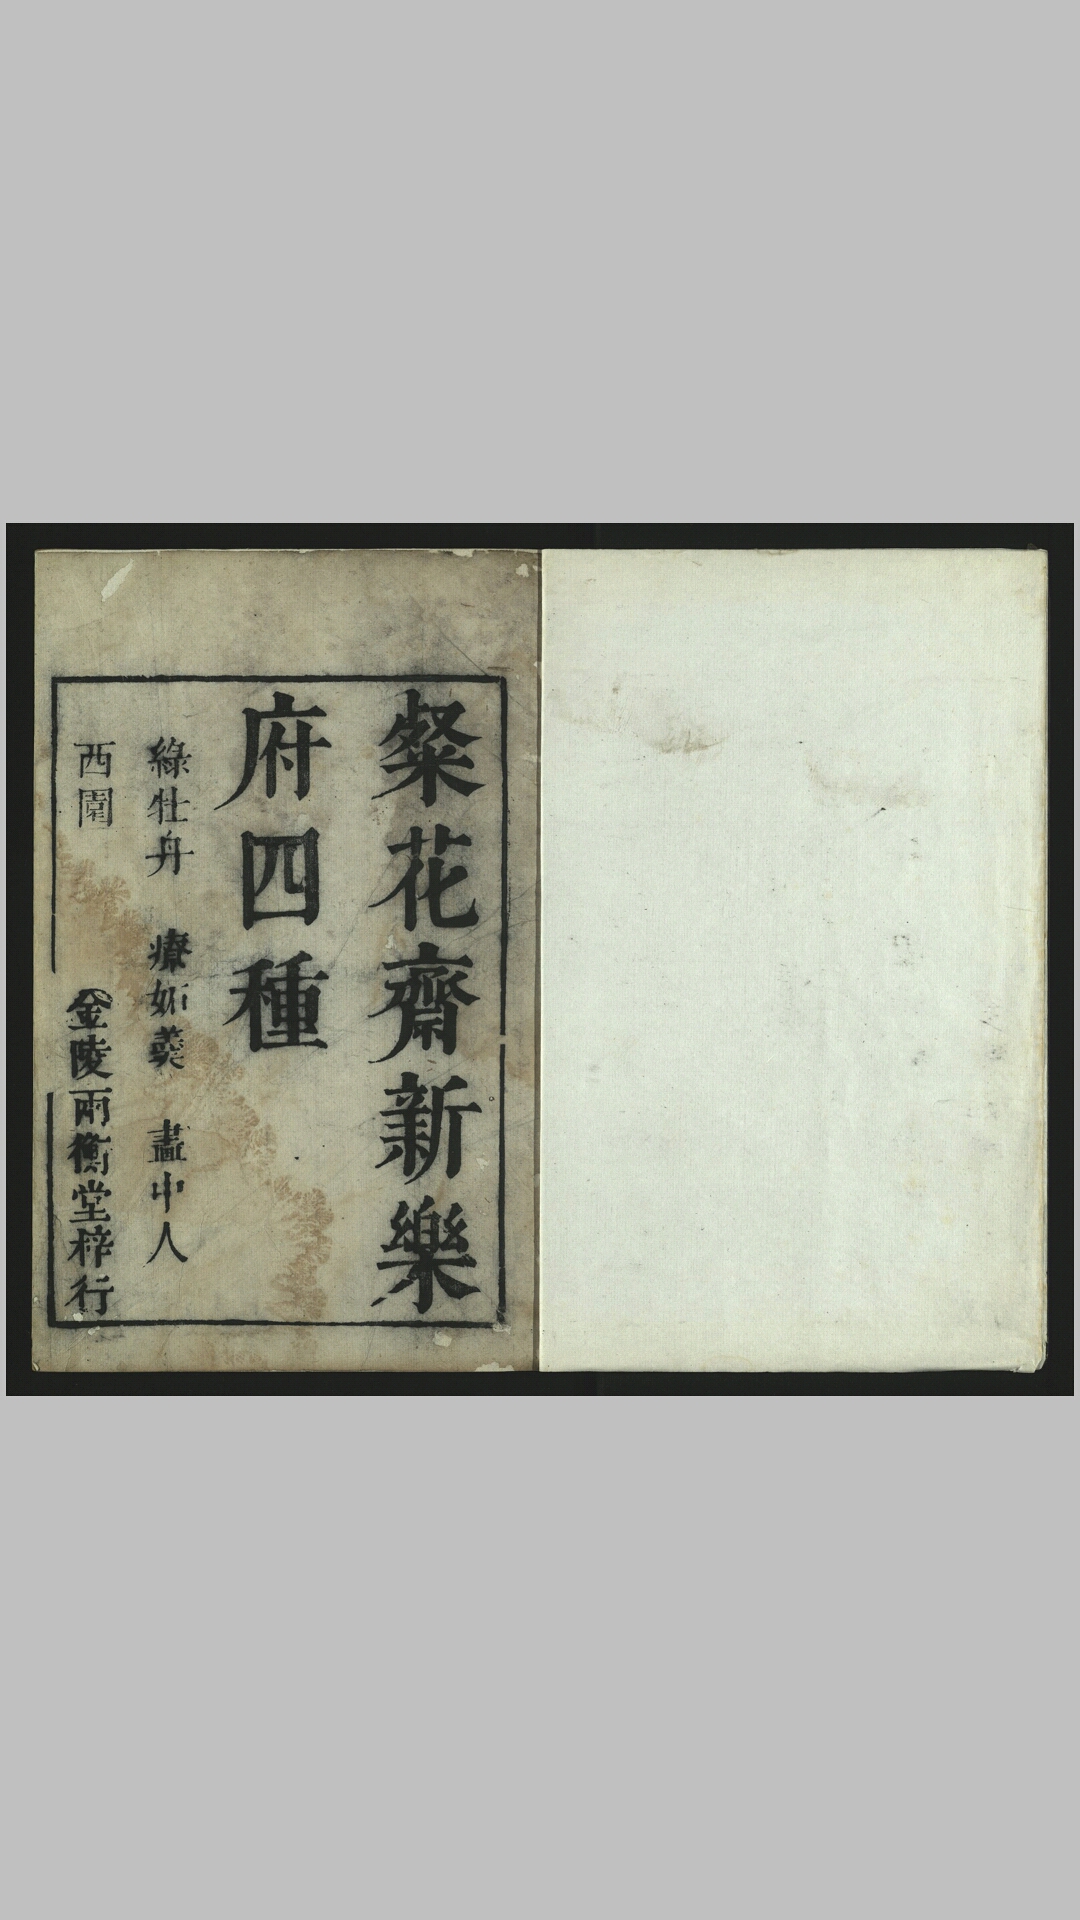 粲花齋新樂
府四種
綠牡丹　療妬羹　畫中人
西園　金陵兩衡堂梓行